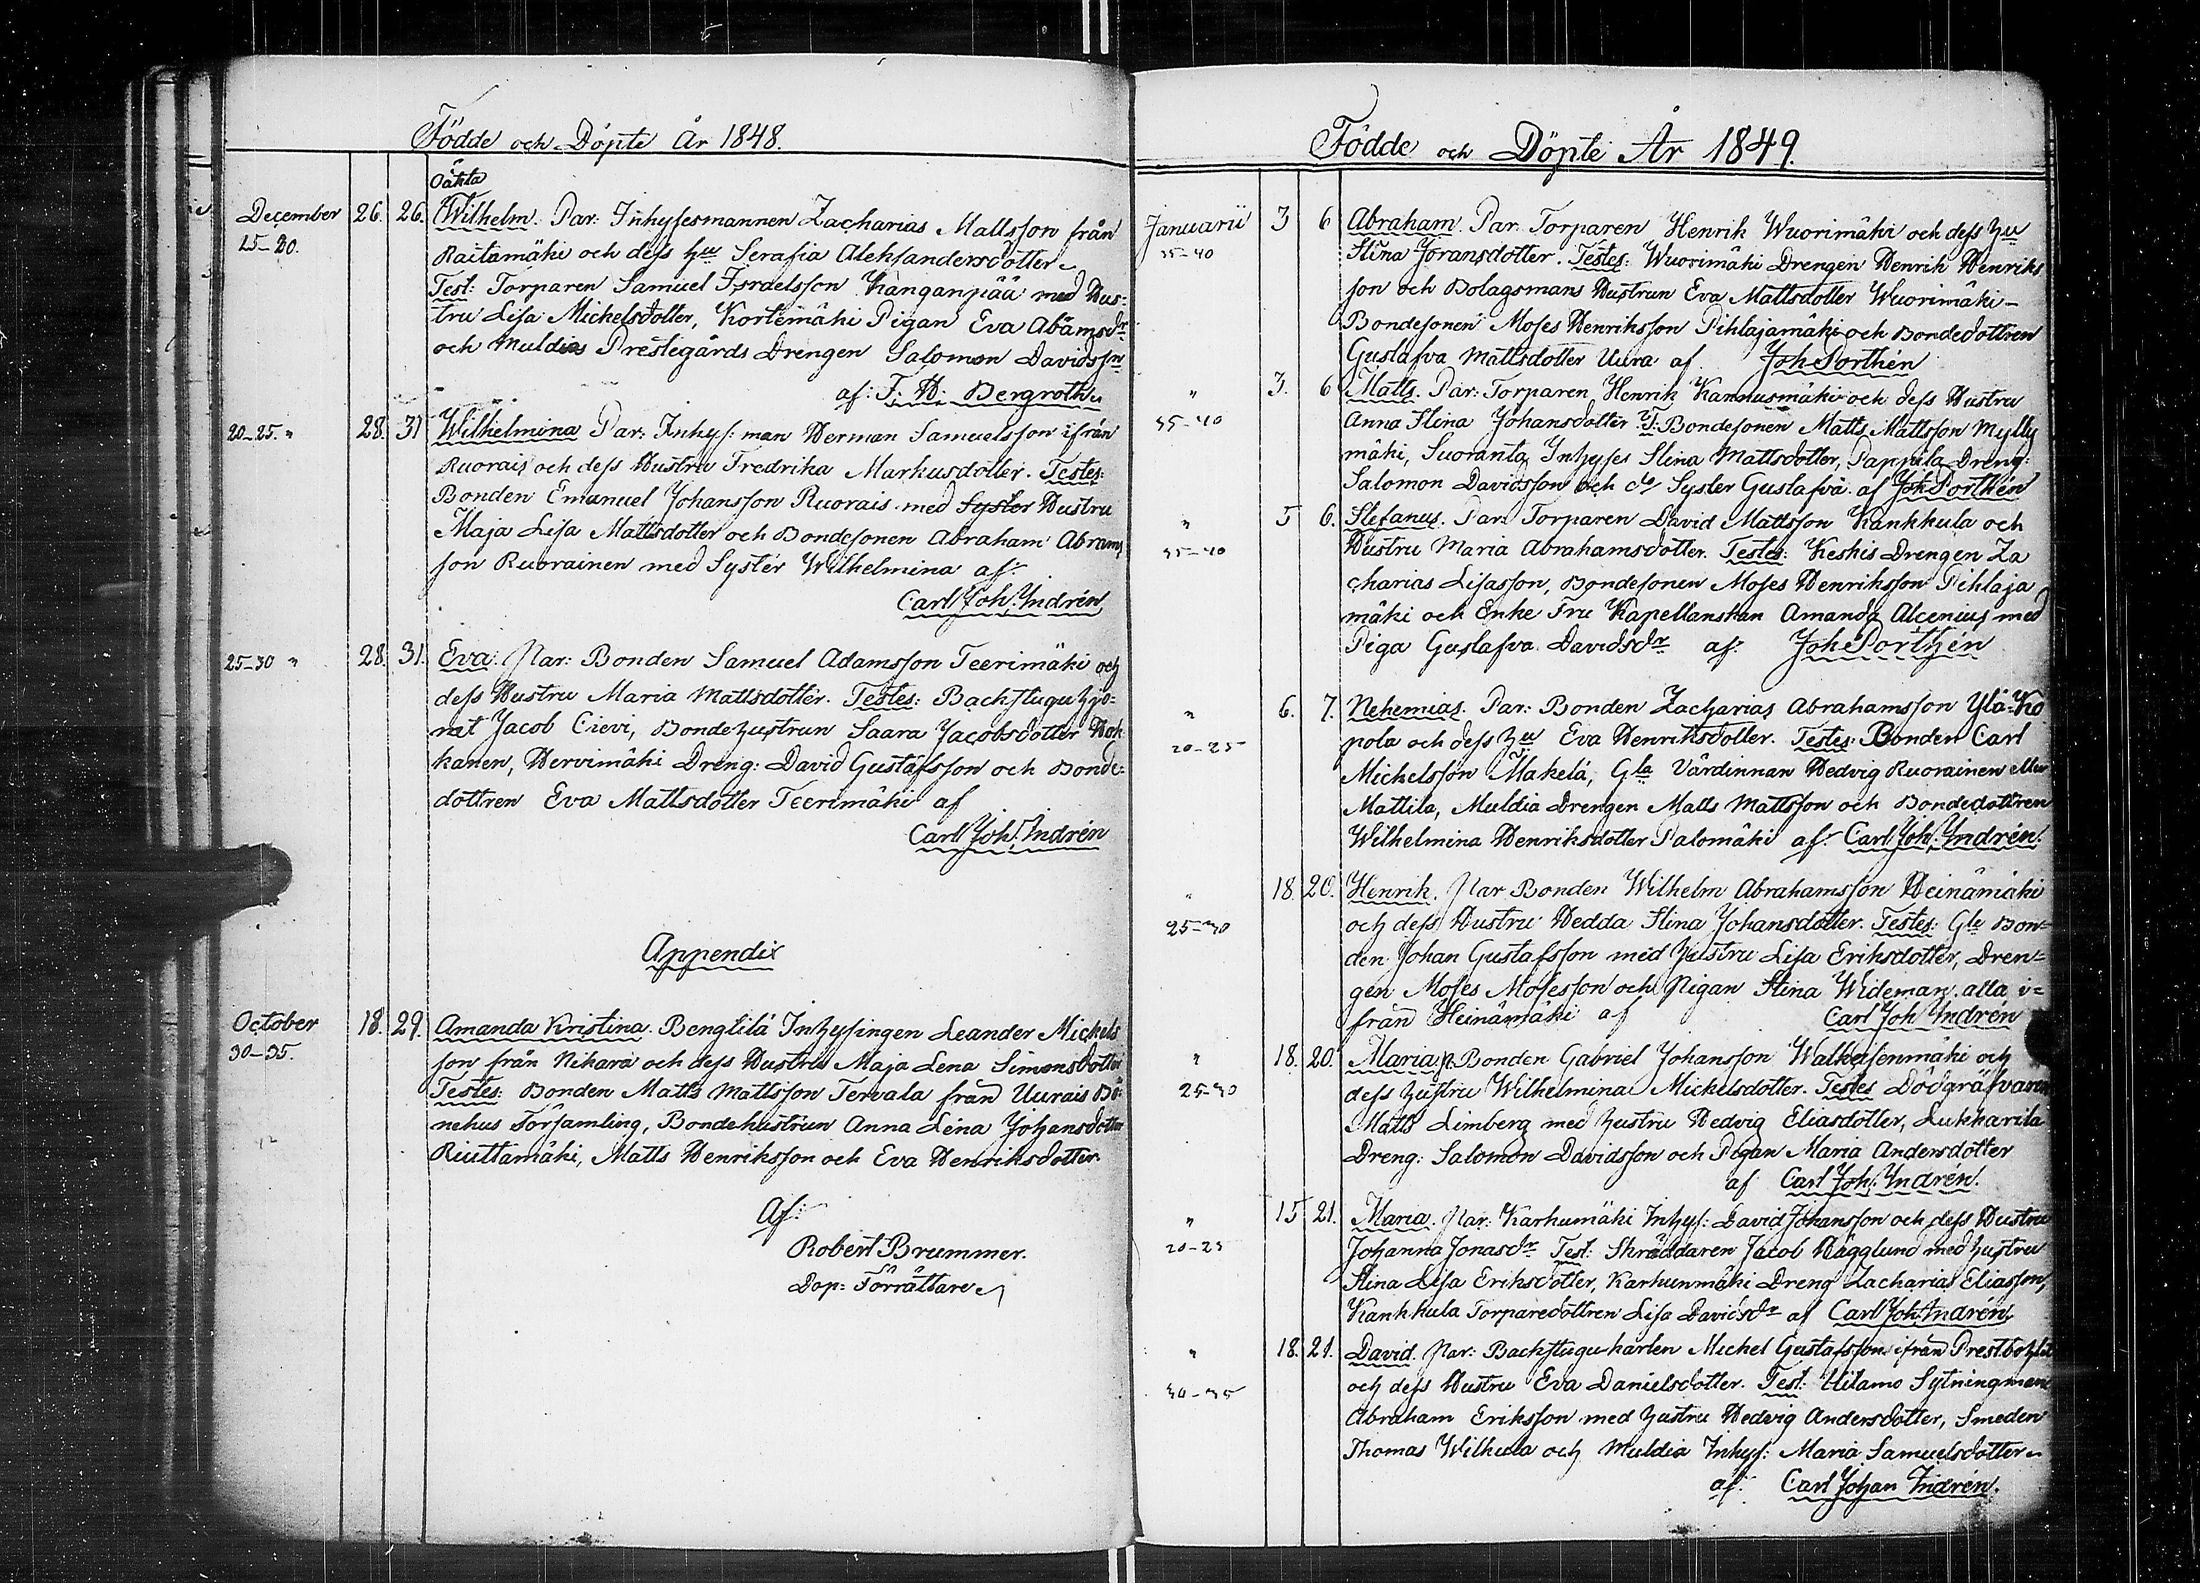 Födde och Döpte År 1848.
Oäkta
December 26. 26. Wilhelm. Par: Inhysesmannen Zacharias Mattsson från
15-20. Raitamäki och dess hu Serafia Aleksandersdotter
Test: Torparen Samuel Israelsson Kanganpää med Hus-
tru Lisa Michelsdotter, Kortemäki Pigan Eva Abramsdr
och Muldias Prestegårds Drengen Salomon Davidsson
af: F. H. Bergroth
20-25. " 28. 31 Wilhelmina Par: Inhys: man Herman Samuelsson ifrån
Ruorais och dess Hustru Fredrika Markusdotter. Testes:
Bonden Emanuel Johansson Ruorais med Syster Hustru
Maja Lisa Mattsdotter och Bondesonen Abraham Abrams
son Ruorainen med Syster Wilhelmina af:
Carl Joh. Indrén
25-30 " 28. 31. Eva: Par: Bonden Samuel Adamsson Teerimäki och
dess Hustru Maria Mattsdotter. Testes: Backstuguhjo-
net Jacob Cievi, Bondehustrun Saara Jacobsdotter Hok
kanen, Hervimäki Dreng: David Gustafsson och Bonde-
dottren Eva Mattsdotter Teerimäki af
Carl Joh. Indrén
Appendix
October 18. 29. Amanda Kristina. Bengtilä Inhysingen Leander Michels
30-35. son från Nikara och dess Hustru Maja Lena Simonsdotter
Testes: Bonden Matts Mattsson Tervala från Uurais Bö-
nehus Församling, Bondehustrun Anna Lena Johansdotter
Riuttamäki, Matts Henriksson och Eva Henriksdotter.
Af:
Robert Brummer.
Dop: Förrättare
Födde och Döpte År 1849.
Januarii 3 6 Abraham. Par. Torparen Henrik Wuorimäki och dess hu
35-40 Stina Joransdotter. Testes: Wuorimäki Drengen Henrik Henriks
son och Bolagsmans Hustrun Eva Mattsdotter Wuorimäki-
Bondesonen Moses Henriksson Pihlajamäki och Bondedottren
Gustafva Mattsdotter Uura af Joh Porthén
" 3. 6 Matts. Par: Torparen Henrik Kannusmäki och dess Hustru
35-40 Anna Stina Johansdotter T: Bondesonen Matts Mattsson Mylly
mäki, Suoranta Inhyses Stina Mattsdotter, Pappila Dreng:
Salomon Davidsson och do Syster Gustafva. af Joh Porthén
" 5 6. Stefanus. Par: Torparen David Mattsson Kankkula och
35-40 Hustru Maria Abrahamsdotter. Testes: Keskis Drengen Za
charias Lisasson, Bondesonen Moses Henriksson Pihlaja
mäki och Enke Fru Kapellanskan Amanda Alcenius med
Piga Gustafva Davidsdr af: Joh Porthén
" 6. 7. Nehemias. Par: Bonden Zacharias Abrahamsson Ylä-Ko
20-25 pola och dess hu Eva Henriksdotter. Testes: Bonden Carl
Michelsson Makelä, Gla Värdinnan Hedvig Ruorainen eller
Mattila, Muldia Drengen Matts Mattsson och Bondedottren
Wilhelmina Henriksdotter Palomäki af: Carl Joh. Indrén.
" 18. 20. Henrik. Par Bonden Wilhelm Abrahamsson Heinämäki
25-30 och dess Hustru Hedda Stina Johansdotter. Testes: Gle Bon-
den Johan Gustafsson med Hustru Lisa Eriksdotter, Dren-
gen Moses Mosesson och Pigan Stina Wideman. alla i-
från Heinämäki af Carl Joh Indrén
" 18. 20. Maria p. Bonden Gabriel Johansson Walkeisenmäki och
25-30 dess hustru Wilhelmina Mickelsdotter. Testes Dödgräfvaren
Matts Limberg med hustru Hedvig Eliasdotter, Lukkarila
Dreng: Salomon Davidsson och Pigan Maria Andersdotter
af Carl Joh. Indrén.
" 15 21. Maria. Par: Karhumäki Inhys: David Johansson och dess Hustru
20-25 Johanna Jonasdr Test: Skräddaren Jacob Hägglund med hustru
Stina Lisa Eriksdotter, Karhunmäki Dreng Zacharias Eliasson,
Kankkula Torparedottren Lisa Davidsdr af Carl Joh Indrén,
" 18. 21. David. Par: Backstugu-karlen Michel Gustafsson ifrån
30-35 och dess Hustru Eva Danielsdotter. Test: Uitamo Sytningman
Abraham Eriksson med hustru Hedvig Andersdotter, Smeden
Thomas Wilhula och Muldia Inhys: Maria Samuelsdotter
af: Carl Johan Indrén.